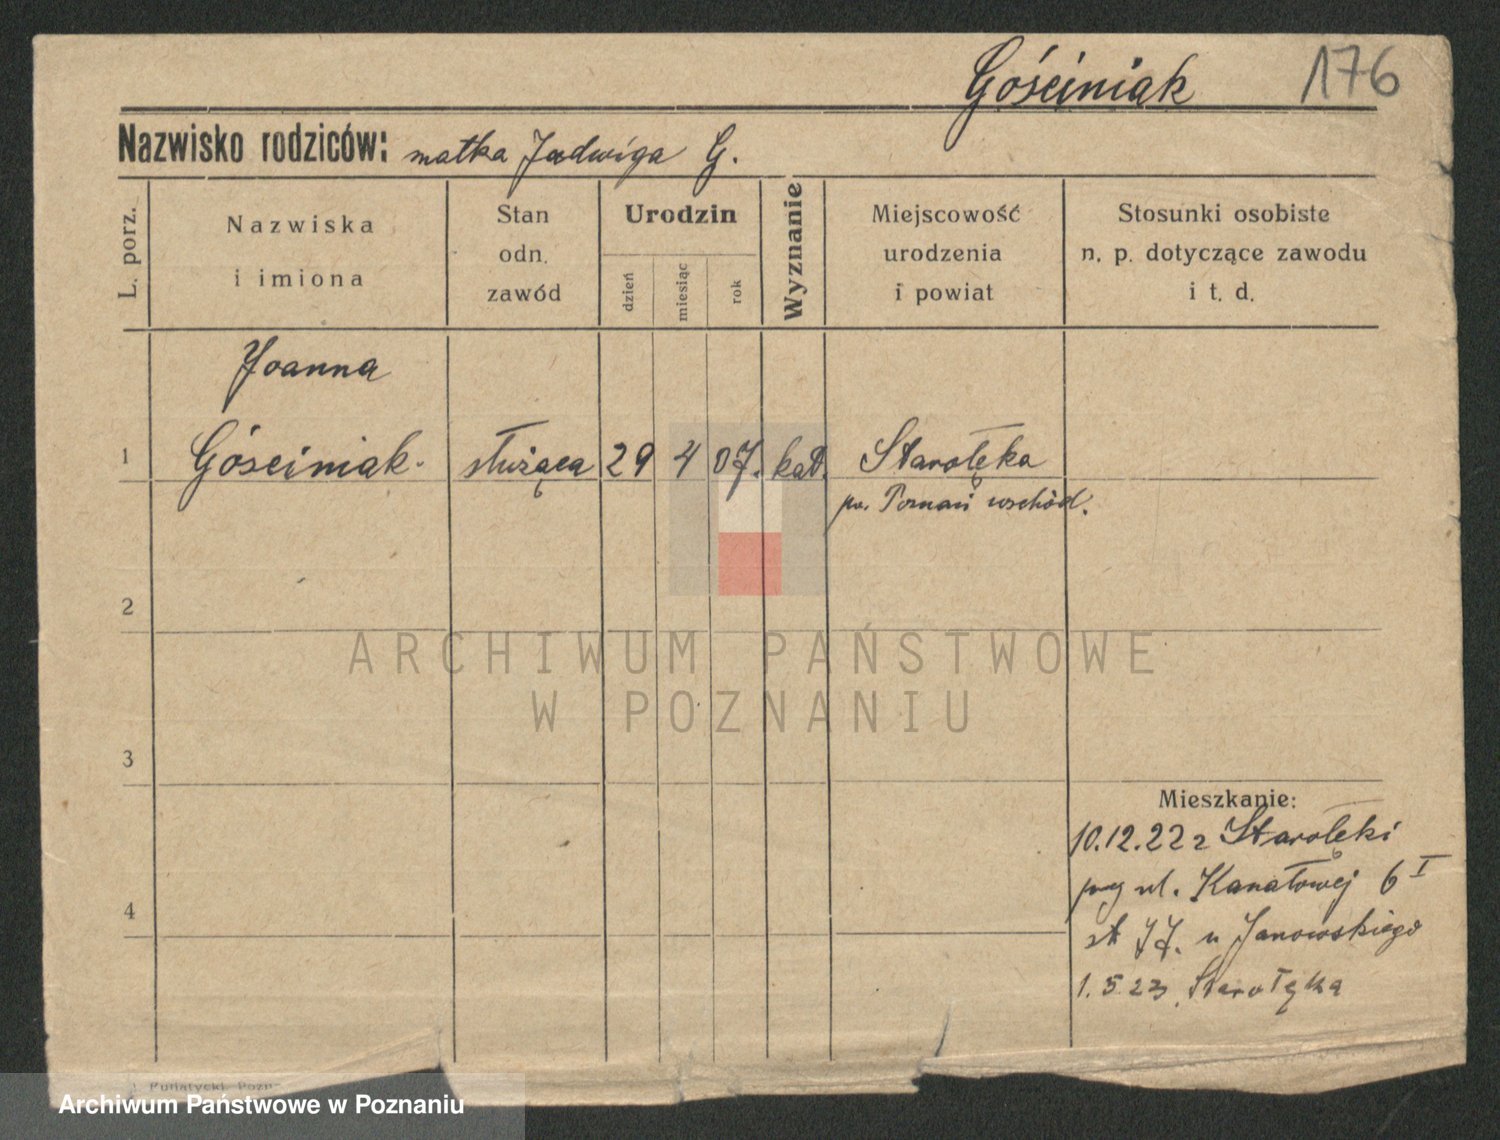 Gościniak 176
Nazwisko rodziców: matka Jadwiga G.
L. porz.
Nazwiska
i imiona
Stan
odn.
zawód
Urodzin
dzień
miesiąc
rok
Wyznanie
Miejscowość
urodzenia
i powiat
Stosunki osobiste
n. p. dotyczące zawodu
i t. d.
Joanna
1 Gościniak. służąca 29 4 07. kat. Starołęka
pw. Poznań wschód.
2
ARCHIWUM PAŃSTWOWE
W POZNANIU
3
Mieszkanie:
10.12.22 z Starołęki
ul. Kanałowej 6 I
u Janowskiego
1.5.23 Starołęka
4
Putiatycki, Pozn
Archiwum Państwowe w Poznaniu